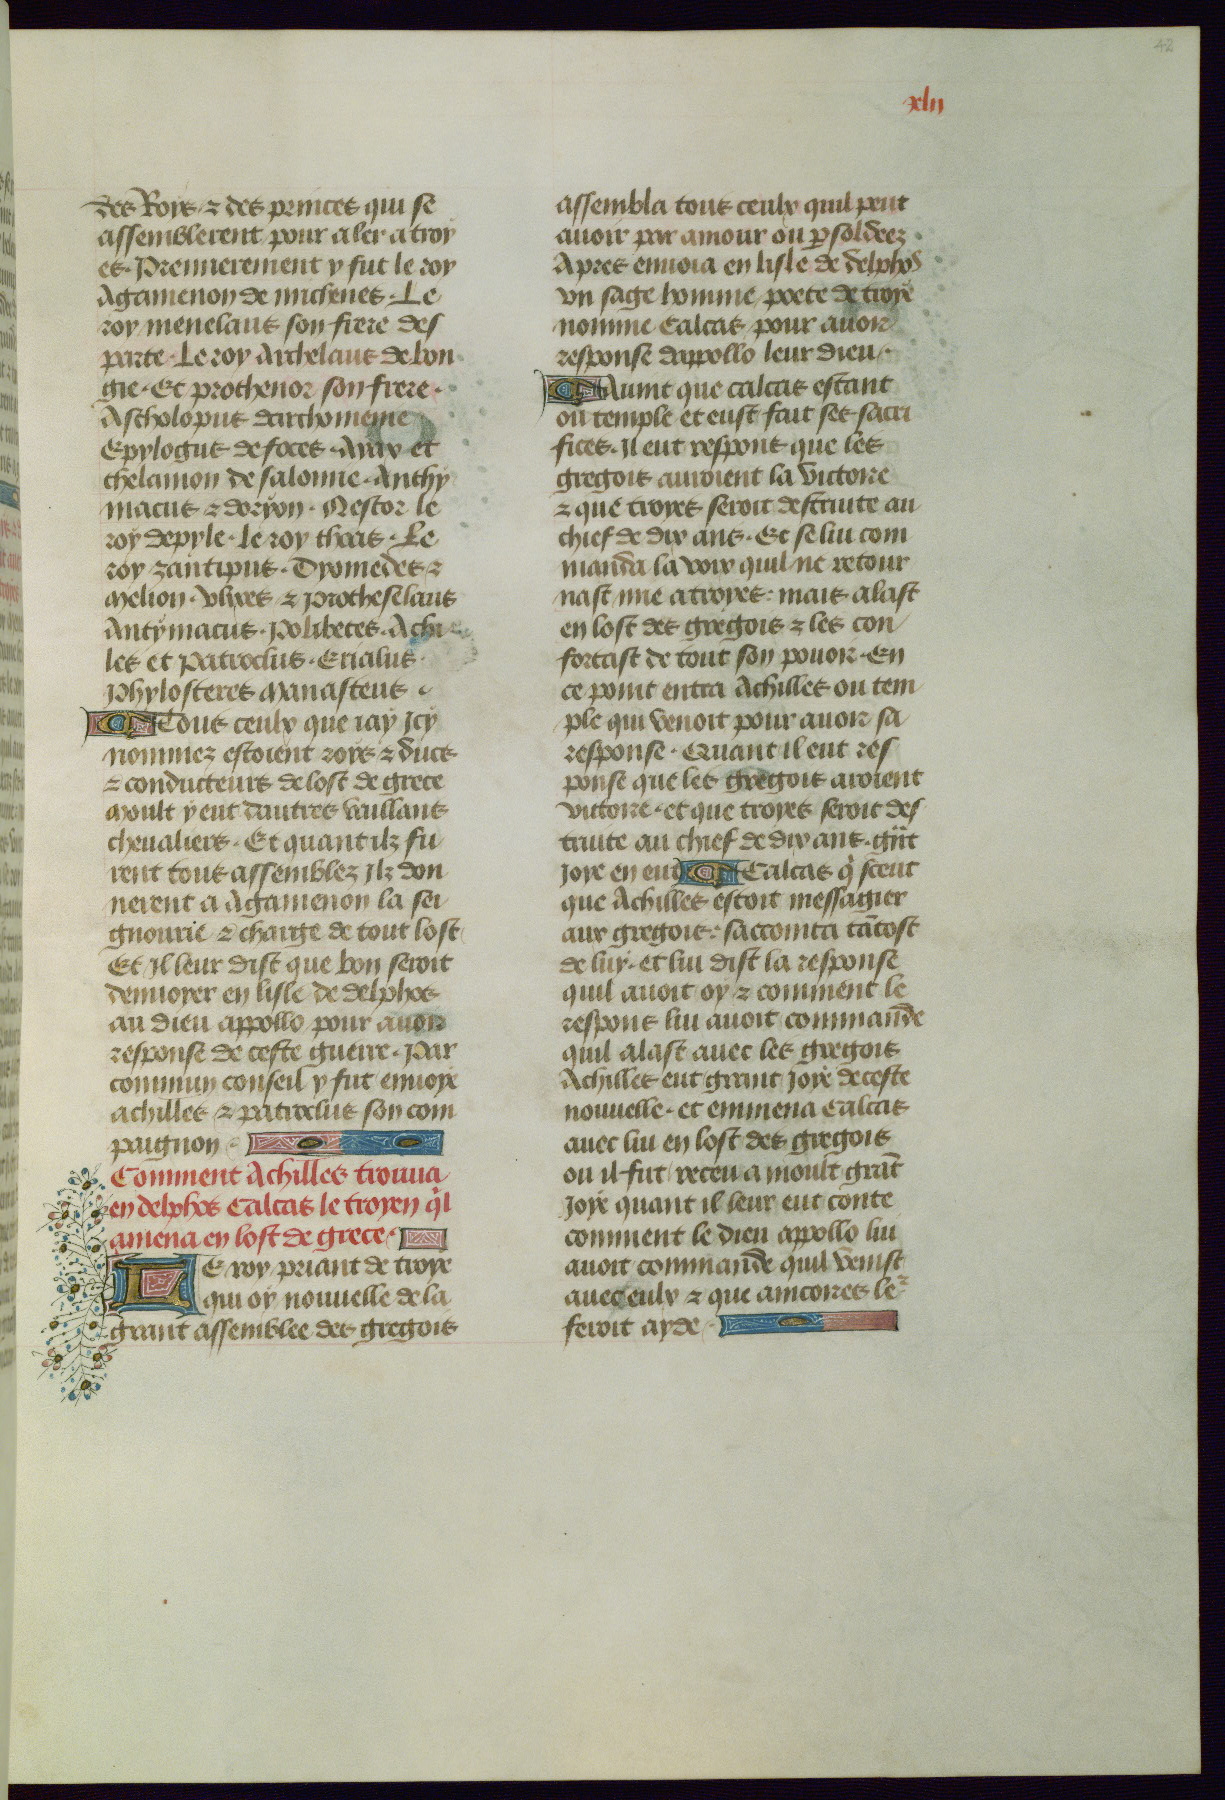 42
xlii
des Roys ⁊ des princes qui se
assemblerent pour aler a troy
es. Premierement y fut le roy
Agamenon de michenes. Le
roy menelaus son frere des
parte. Le roy Archelaus de bon
gie. Et prothenor son frere.
Ascholopus darchomeine
Epylogus de foces. Ayax et
thelamon de salonne. Anthy
macus ⁊ doryon. Nestor le
roy de pyle. Le roy thoas. Le
roy zantipus. Dyomedes ⁊
Melion. Vlixes ⁊ Protheselaus
Antymacus. Polibetes. Achi
les et Patroclus. Erialus.
Phylosteres Manasteus.
Tous ceulx que iay Icy
nommez estoient roys ⁊ ducs
⁊ conducteurs de lost de grece
Moult y eut dautres vaillans
cheualiers. Et quant ilz fu
rent tous assemblez Ilz don
nerent a Agamenon la sei
gnourie ⁊ charge de tout lost
Et Il leur dist que bon seroit
denuoyer en lisle de delphos
au dieu appollo pour auoir
response de ceste guerre. Par
commun conseil y fut enuoye
achilles ⁊ patroclus son com
paignon.
Comment Achilles trouua
en delphos Calcas le troyen q̇l
amena en lost de grece.
Le roy priant de troye
qui oy nouuelle de la
grant assemblee des gregois
assembla tous ceulx quil peut
auoir par amour ou ꝑ soldeez.
Apres enuoia en lisle de delphos
vn sage homme poete de troye
nomme Calcas pour auoir
response dappollo leur dieu.
Auint que calcas estant
ou temple et eust fait ses sacri
fices. Il eut respons que les
gregois auroient la victoire
⁊ que troyes seroit destruite au
chief de dix ans. Et se lui com
manda la voix quil ne retour
nast mie a troyes: mais alast
en lost des gregois ⁊ les con
fortast de tout son pouoir. En
ce point entra Achilles ou tem
ple qui venoit pour auoir sa
response. Quant il eut res
ponse que les gregois auoient
victoire. et que troyes seroit des
truite au chief de dix ans. gñt
Joye en eut Calcas q̇ sceut
que Achilles estoit messagier
aux gregois: saccointa tātost
de luy. et lui dist la response
quil auoit oy ⁊ comment le
respons lui auoit commande
quil alast auec les gregois
Achilles eut grant Joye de ceste
nouuelle. et emmena Calcas
auec lui en lost des gregois
ou il fut receu a moult grāt
Joye quant il leur eut conte
comment le dieu appollo lui
auoit commande quil venist
auec eulx ⁊ que aincoires leur
feroit ayde